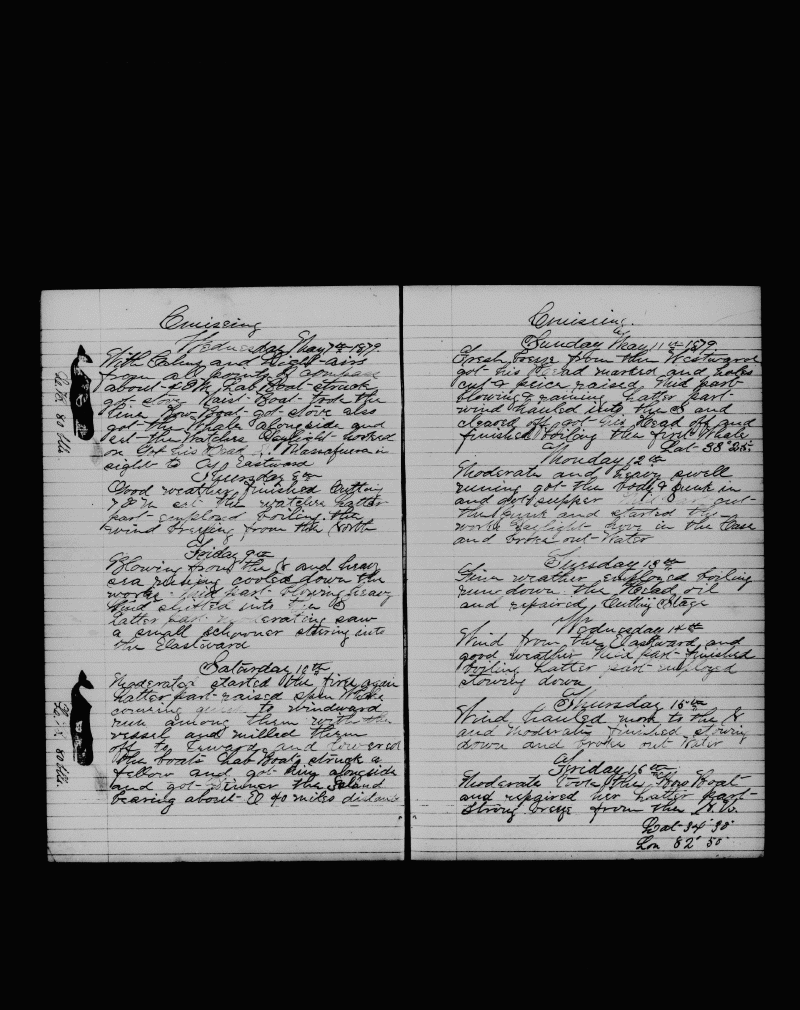 Cruising
Wednesday May 7th 1879.
With Calms and light airs
from all points of compass
about 4 P.M. Lab Boat struck
got stove Waist Boat took the
line Bow Boat got stove also
got the Whale alongside and
set the Watches Daylight hooked
on Got his Head Massafuera in
sight to Eastward
Thursday 8th
Good weather finished Cutting
7 P.M. set the watches Latter
part employed boiling the
wind breezing from the North
Friday 9th
Blowing from the N and heavy
sea running cooled down the
works Mid part blowing heavy
Wind shifted into the S
Latter part moderating saw
a small schooner steering into
the Eastward
Saturday 10th
Moderate started the fires again
Latter part raised Sperm Whales
coming quick to windward
run among them with the
vessel and milled them
off to Leward and lowered
the boats Lab Boat struck a
fellow and got him alongside
and got dinner the Island
bearing about E 40 miles distant
80 bbls.
80 bbls
Cruising.
Sunday May 11th 1879
Fresh breeze from the Westward
got his Head marked and holes
cut & piece raised Mid part
blowing & raining Latter part
wind hauled into the S and
cleared off got his Head off and
finished boiling the first Whale
Lat 33° 25'
Monday 12th
Moderate and heavy swell
runing got the body & Junk in
and got supper got
the Junk and started the
works Daylight hove in the Case
and broke out Water
Tuesday 13th
Fine weather employed boiling
run down the Head oil
and repaired Cutting Stage
Wednesday 14th
Wind from the Eastward and
good weather Mid part finished
boiling Latter part employed
stowing down
Thursday 15th
Wind hauled more to the N
and moderate finished stowing
down and broke out Water
Friday 16th
Moderate took the Bow Boat
and repaired her Latter part
strong breeze from the N.W.
Lat 34° 30'
Lon 82° 50'